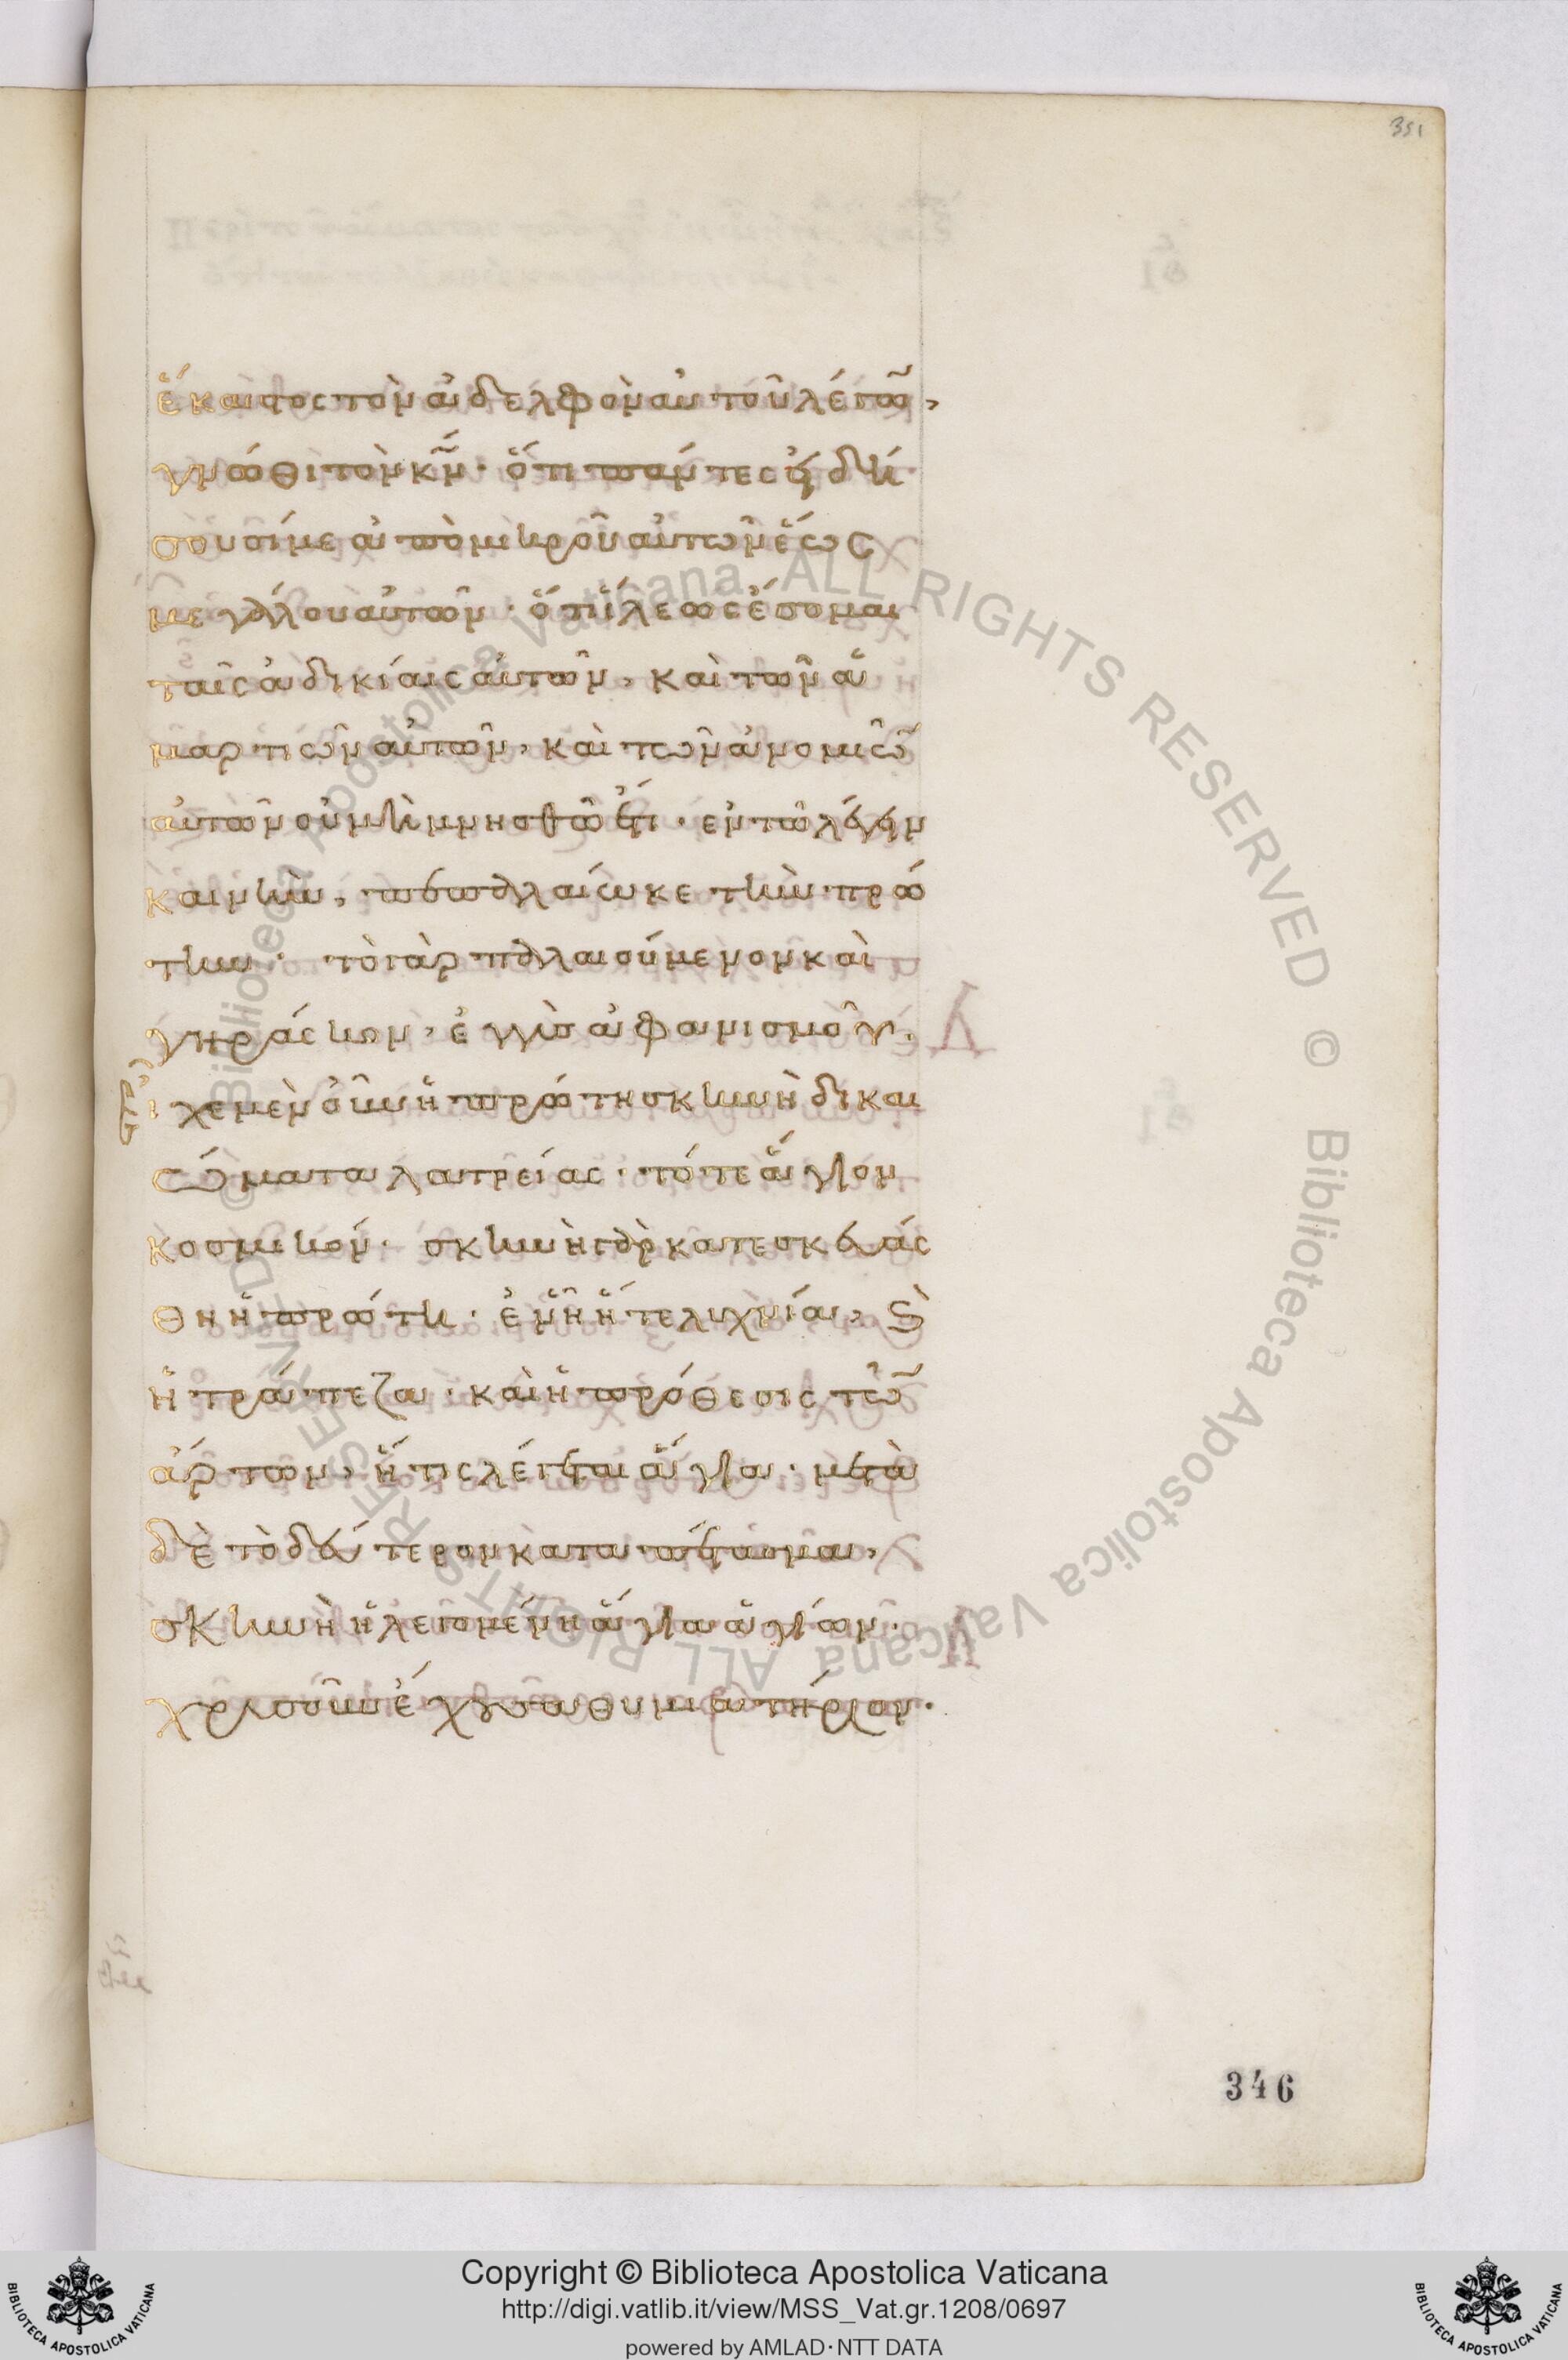 351
ἕκαστος τὸν ἀδελφὸν αὐτοῦ λέγω̃,
γνῶθι τὸν κ̅ν̅· ὅτι πάντες εἰδή
σουσί με ἀπὸ μικροῦ αὐτῶν ἕως
μεγάλου αὐτῶν· ὅτι ἵλεως ἔσομαι
ταῖς ἀδικίαις αὐτῶν, καὶ τῶν ἁ
μαρτιῶν αὐτῶν, καὶ τῶν ἀνομιῶ̃
αὐτῶν οὐ μὴ μνησθῶ ἔτι· ἐν τῶ λέγειν
καινὴν, πεπαλαίωκε τὴν πρώ
την· τὸ γὰρ παλαιούμενον καὶ
γηράσκον, ἐγγὺς ἀφανισμοῦ·
εἶχε μὲν οὖν ἡ πρώτη σκηνὴ δικαι
ώματα λατρείας· τό τε ἅγιον
κοσμικόν· σκηνὴ γὰρ κατεσκευάσ
θη ἡ πρώτη· ἐν ἧ ἥ τε λυχνία, ϗ̀
ἡ τράπεζα· καὶ ἡ πρόθεσις τῶ̃
ἄρτων, ἥτις λέγεται ἅγια· μετὰ
δὲ τὸ δεύτερον καταπέτασμα,
σκηνὴ ἡ λεγομένη ἅγια ἁγίων·
χρυσοῦν ἔχουσα θυμιατήριον·
346
Copyright © Biblioteca Apostolica Vaticana
http://digi.vatlib.it/view/MSS_Vat.gr.1208/0697
powered by AMLAD·NTT DATA
BIBLIOTECA APOSTOLICA VATICANA
BIBLIOTECA APOSTOLICA VATICANA
© Biblioteca Apostolica Vaticana ALL RIGHTS RESERVED © Biblioteca Apostolica Vaticana ALL RIGHTS RESERVED